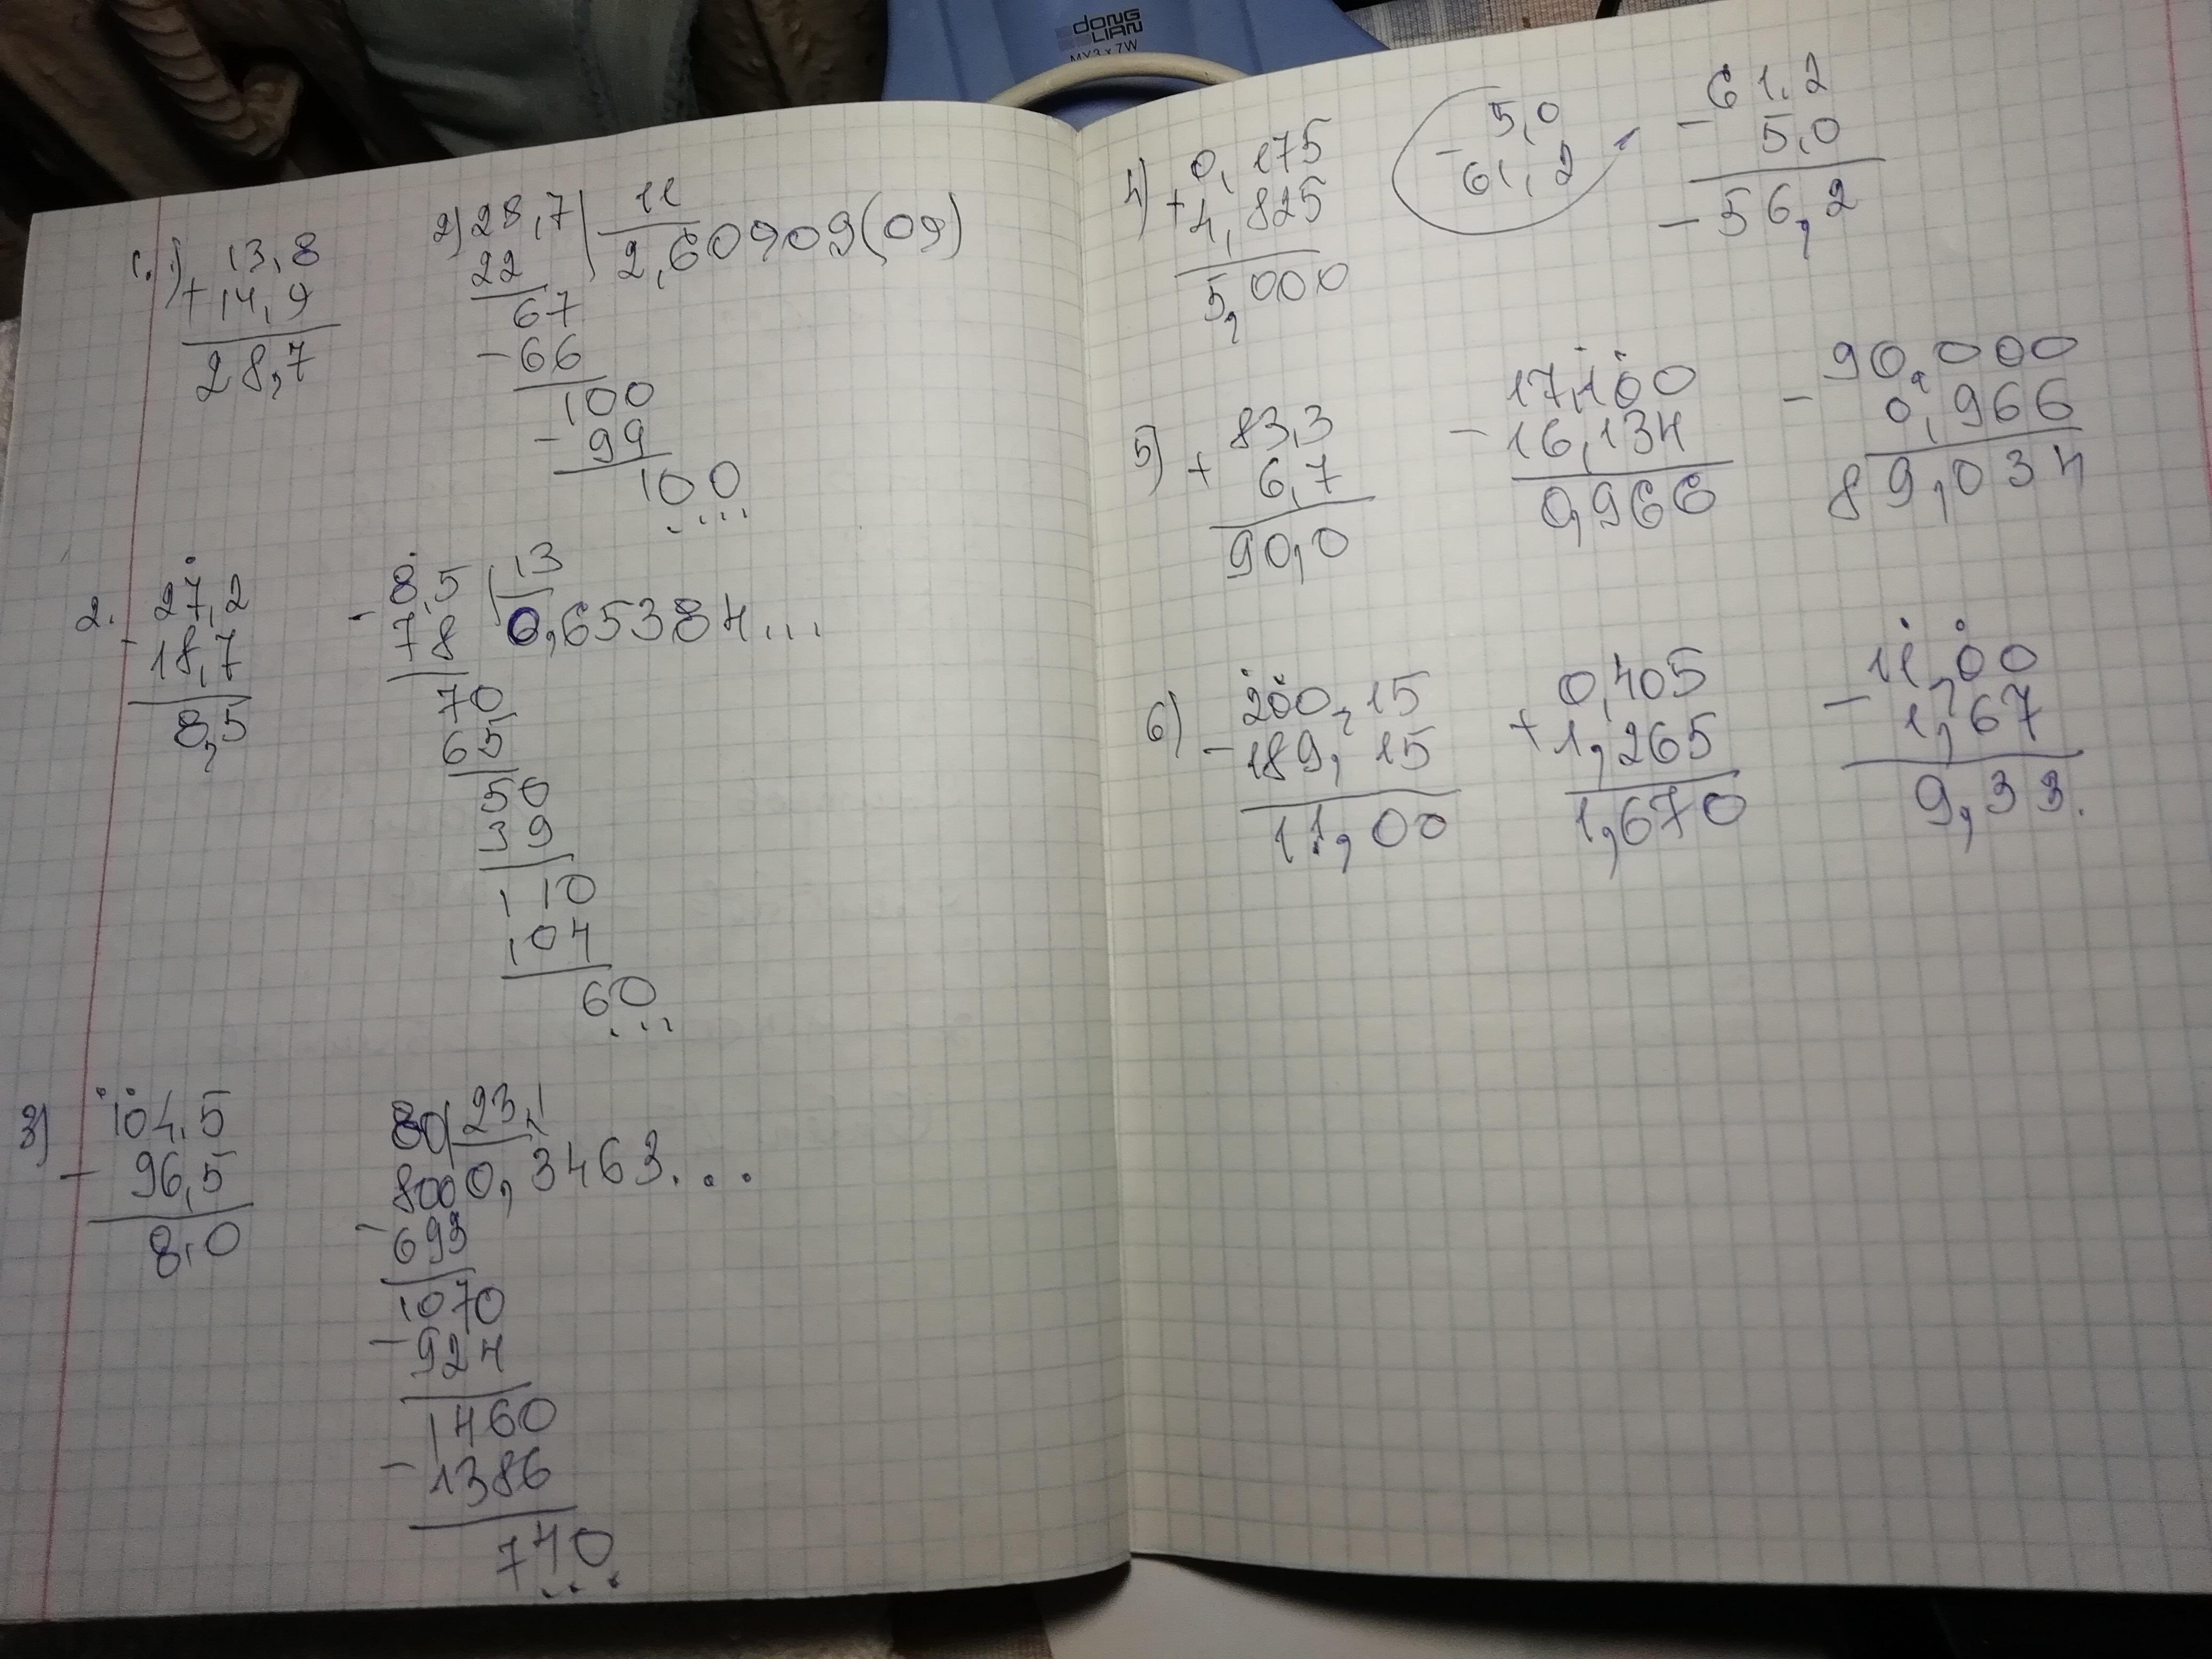 DONG
LIAN
MY3x7W
1. 1) + 13,8
14,9
28,7
2) 28,7 | 11
22 2,60909(09)
67
- 66
100
- 99
100
....
2. - 27,2
18,7
8,5
- 8,5 | 13
78 0,65384...
70
65
50
39
110
104
60
...
3) - 104,5
96,5
8,0
80 | 23,1
800 0,3463...
- 693
1070
- 924
1460
- 1386
740
...
4) + 0,175
4,825
5,000
- 5,0
61,2
- 61,2
5,0
- 56,2
5) + 83,3
6,7
90,0
- 17,100
16,134
0,966
- 90,000
0,966
89,034
6) - 200,15
189,15
11,00
+ 0,405
1,265
1,670
- 11,00
1,67
9,33.